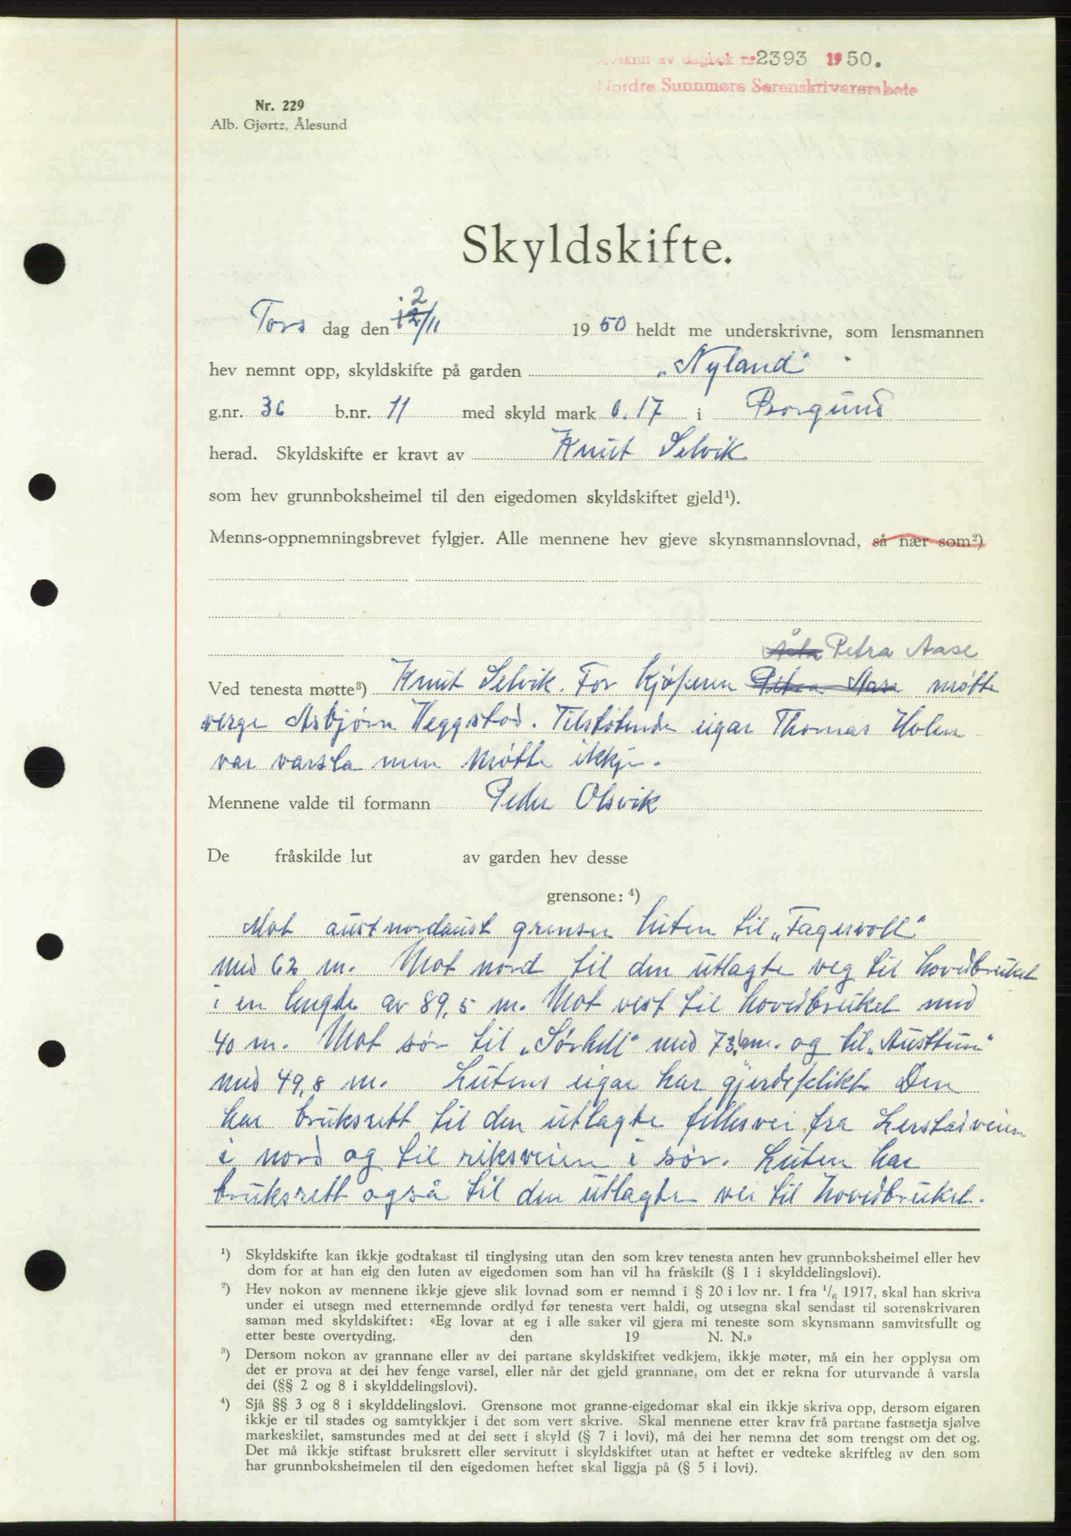 Avskrift av dagbok nr 2393 1950.
Nordre Sunnmøre Sorenskrivarembete
Nr. 229
Alb. Gjørtz, Ålesund
Skyldskifte.
Tors dag den 2/11 1950 heldt me underskrivne, som lensmannen
hev nemnt opp, skyldskifte på garden „Nyland"
g.nr. 36 b.nr. 11 med skyld mark 0.17 i Borgund
herad. Skyldskifte er kravt av Knut Selvik
som hev grunnboksheimel til den eigedomen skyldskiftet gjeld¹).
Menns-oppnemningsbrevet fylgjer. Alle mennene hev gjeve skynsmannslovnad, så nær som²)
Petra Aase
Ved tenesta møtte³) Knut Selvik. For kjøperen Petra Aase møtte
verge Asbjørn Heggstad. Tilstøtende eigar Thomas Holen
var varsla men møtte ikkje.
Mennene valde til formann Peder Olsvik
De fråskilde lut av garden hev desse
grensone: ⁴)
Mot aust nordaust grenser luten til „Fagervoll"
med 62 m. Mot nord til den utlagte veg til hovedbruket
i en lengde av 89,5 m. Mot vest til hovedbruket med
40 m. Mot sør til „Sørhell" med 73, m. og til „Austtun"
med 49,8 m. Lutens eigar har gjerdeplikt. Den
har bruksrett til den utlagte fellesvei fra Lerstadveien
i nord og til riksveien i sør. Luten har
bruksrett også til den utlagte vei til hovedbruket.
¹) Skyldskifte kan ikkje godtakast til tinglysing utan den som krev tenesta anten hev grunnboksheimel eller hev
dom for at han eig den luten av eigedomen som han vil ha fråskilt (§ 1 i skylddelingslovi).
²) Hev nokon av mennene ikkje gjeve slik lovnad som er nemnd i § 20 i lov nr. 1 fra 1/6 1917, skal han skriva
under ei utsegn med etternemnde ordlyd før tenesta vert haldi, og utsegna skal sendast til sorenskrivaren
saman med skyldskiftet: «Eg lovar at eg i alle saker vil gjera mi teneste som skynsmann samvitsfullt og
etter beste overtyding. den 19 N. N.»
³) Dersom nokon av grannane eller av dei partane skyldskiftet vedkjem, ikkje møter, må ein her opplysa om
det er prova at dei hev fenge varsel, eller når det gjeld grannane, om det er rekna for uturvande å varsla
dei (§§ 2 og 8 i skylddelingslovi).
⁴) Sjå §§ 3 og 8 i skylddelingslovi. Grensone mot granne-eigedomar skal ein ikkje skriva opp, dersom eigaren
ikkje er til stades og samtykkjer i det som vert skrive. Skal mennene etter krav frå partane fastsetja sjølve
markeskilet, samstundes med at dei sett i skyld (§ 7 i lovi), må dei her nemna det som trengst om det og.
Det må ikkje stiftast bruksrett eller servitutt i skyldskiftet utan at heftet er vedteke skriftleg av den som
har grunnboksheimelen til den eigedomen heftet skal liggja på (§ 5 i lovi).